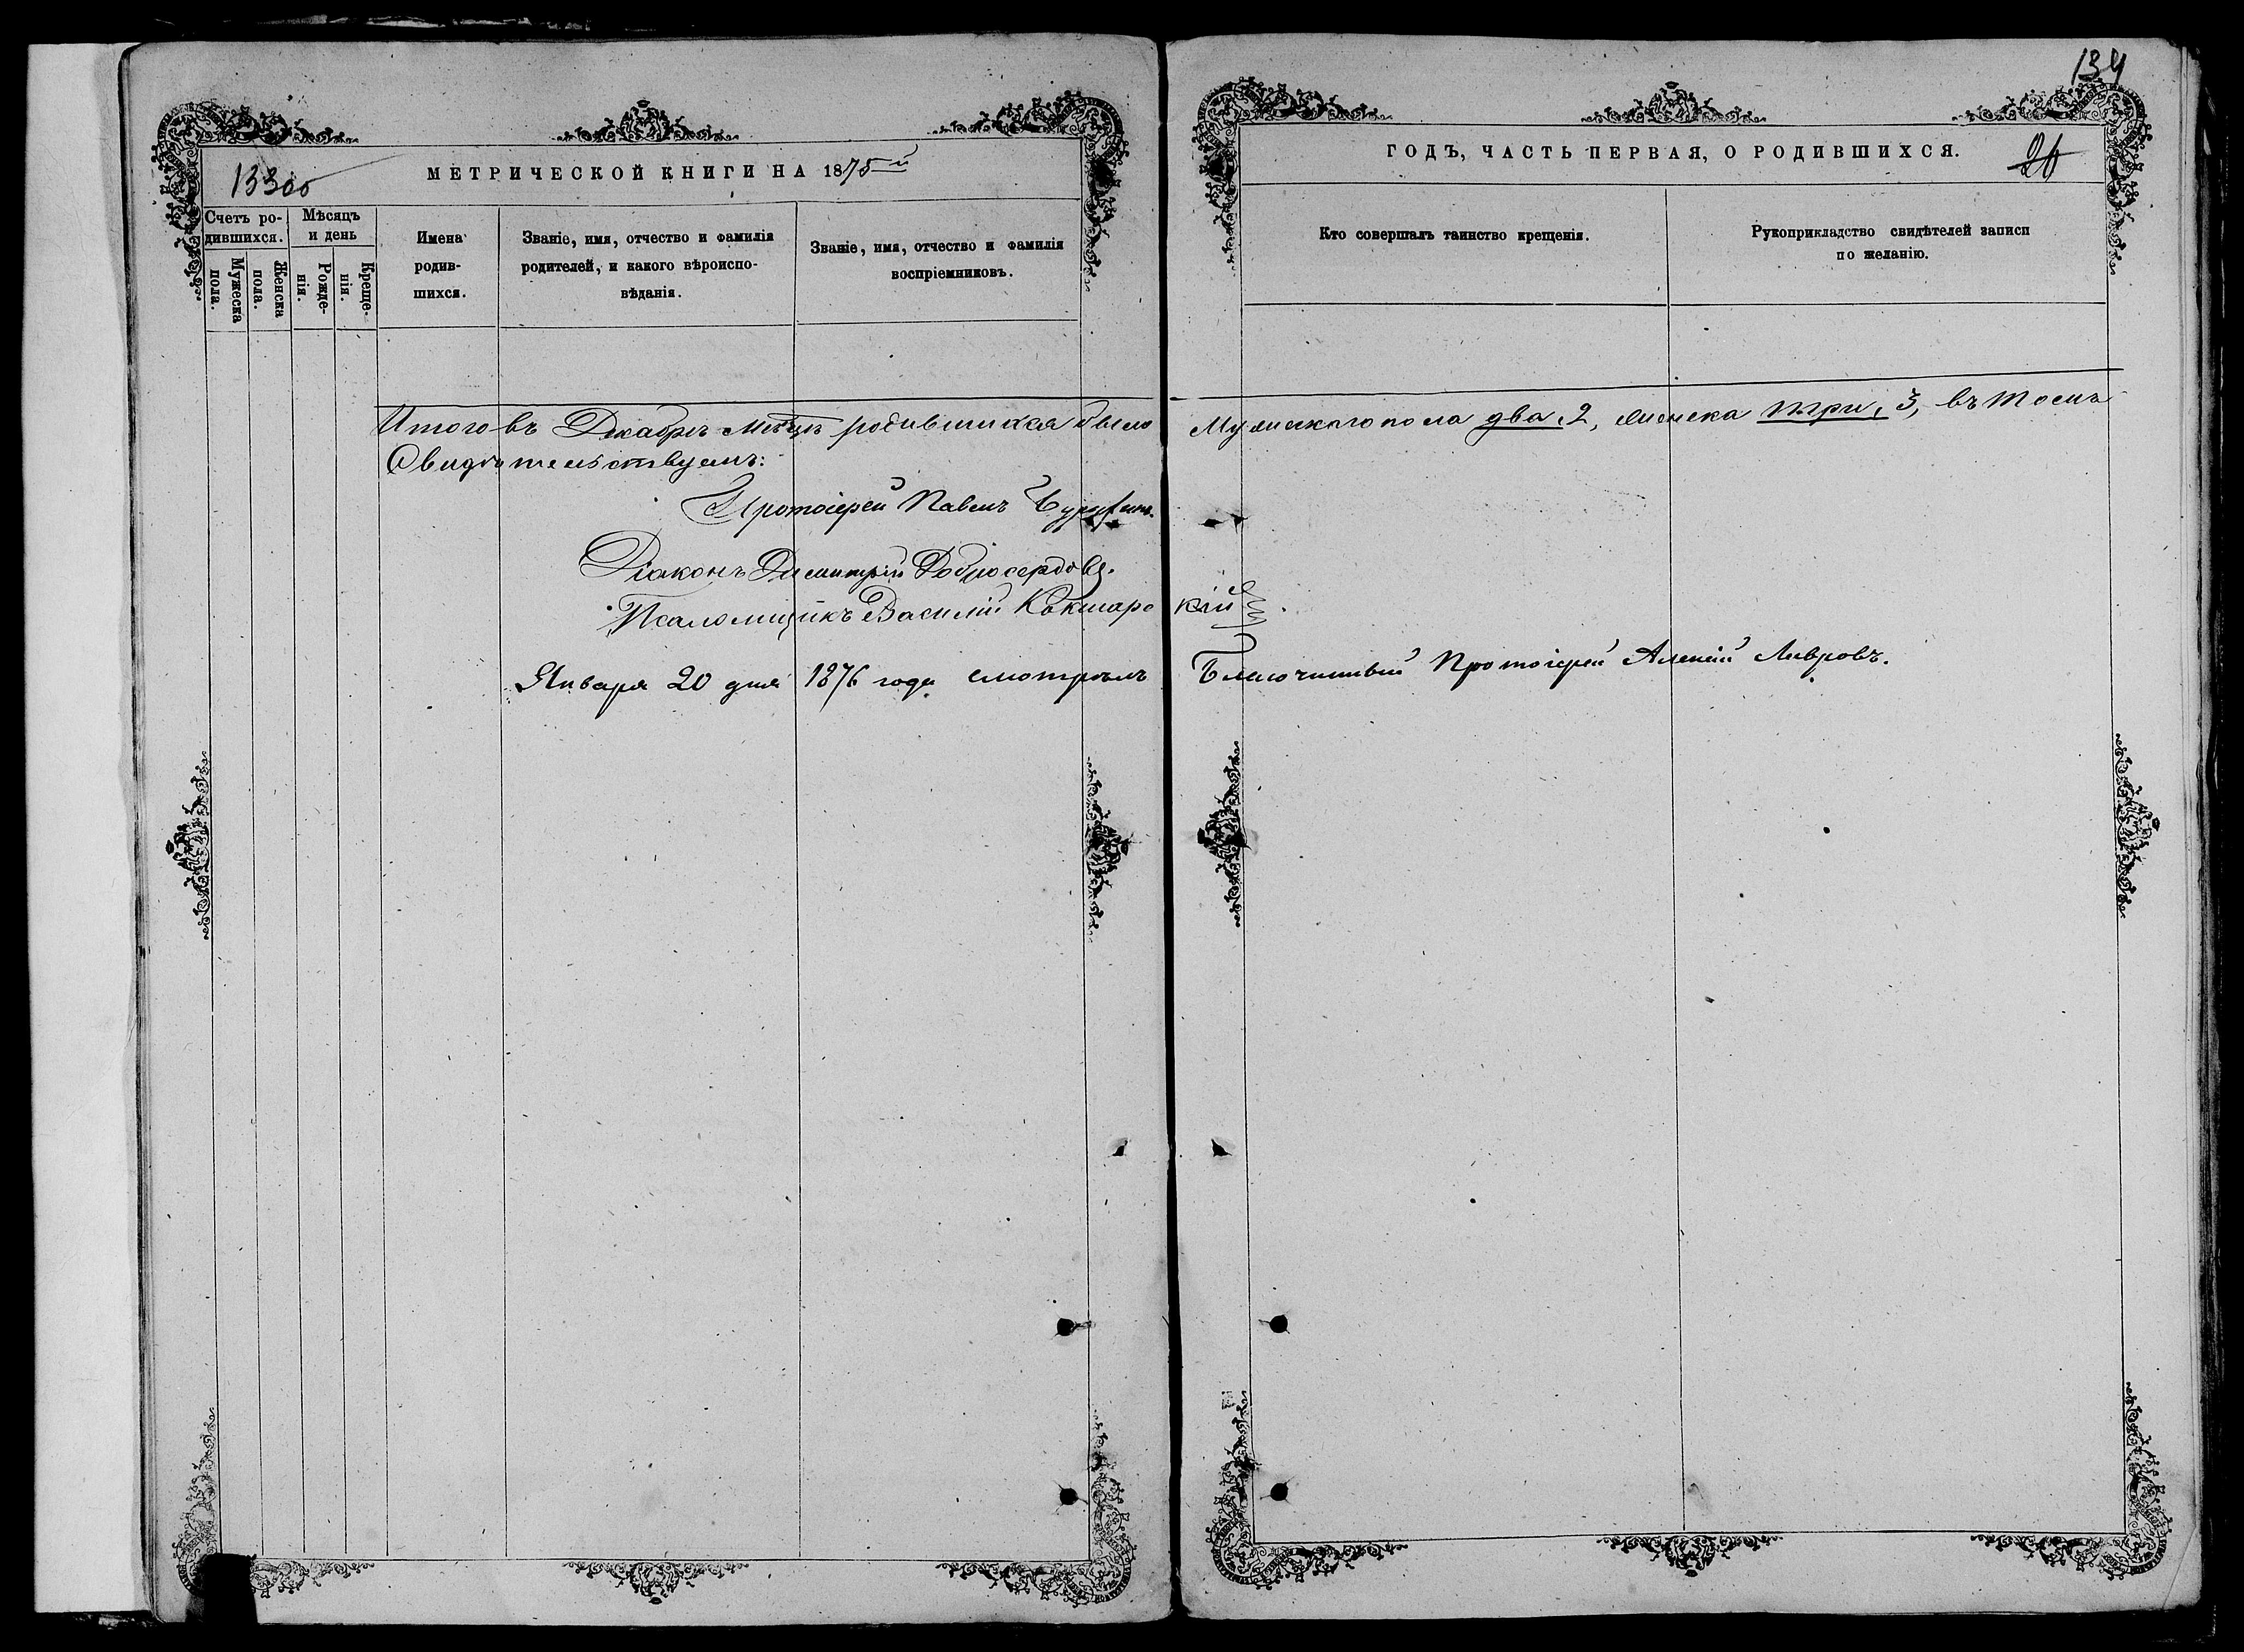 134
13300
МЕТРИЧЕСКОЙ КНИГИ НА 1875й
ГОДЪ, ЧАСТЬ ПЕРВАЯ, О РОДИВШИХСЯ.
26
Счетъ ро-
дившихся.
Мужеска
пола.
Женска
пола.
Мѣсяцъ
и день
Рожде-
нія.
Креще-
нія.
Имена
родив-
шихся.
Званіе, имя, отчество и фамилія
родителей, и какого вѣроиспо-
вѣданія.
Званіе, имя, отчество и фамилія
воспріемниковъ.
Кто совершалъ таинство крещенія.
Рукоприкладство свидѣтелей записи
по желанію.
Итого въ Декабрѣ Мѣсцѣ родившихся было Мужескаго пола два, 2, женска три, 3, въ томъ
Свидѣтельствуемъ:
Протоіерей Павелъ
Діаконъ Димитрій Добросердовъ.
Псаломщикъ Василій Кокшарскій
Января 20 дня 1876 года смотрѣлъ Благочинный Протоіерей Алексій Лавровъ.